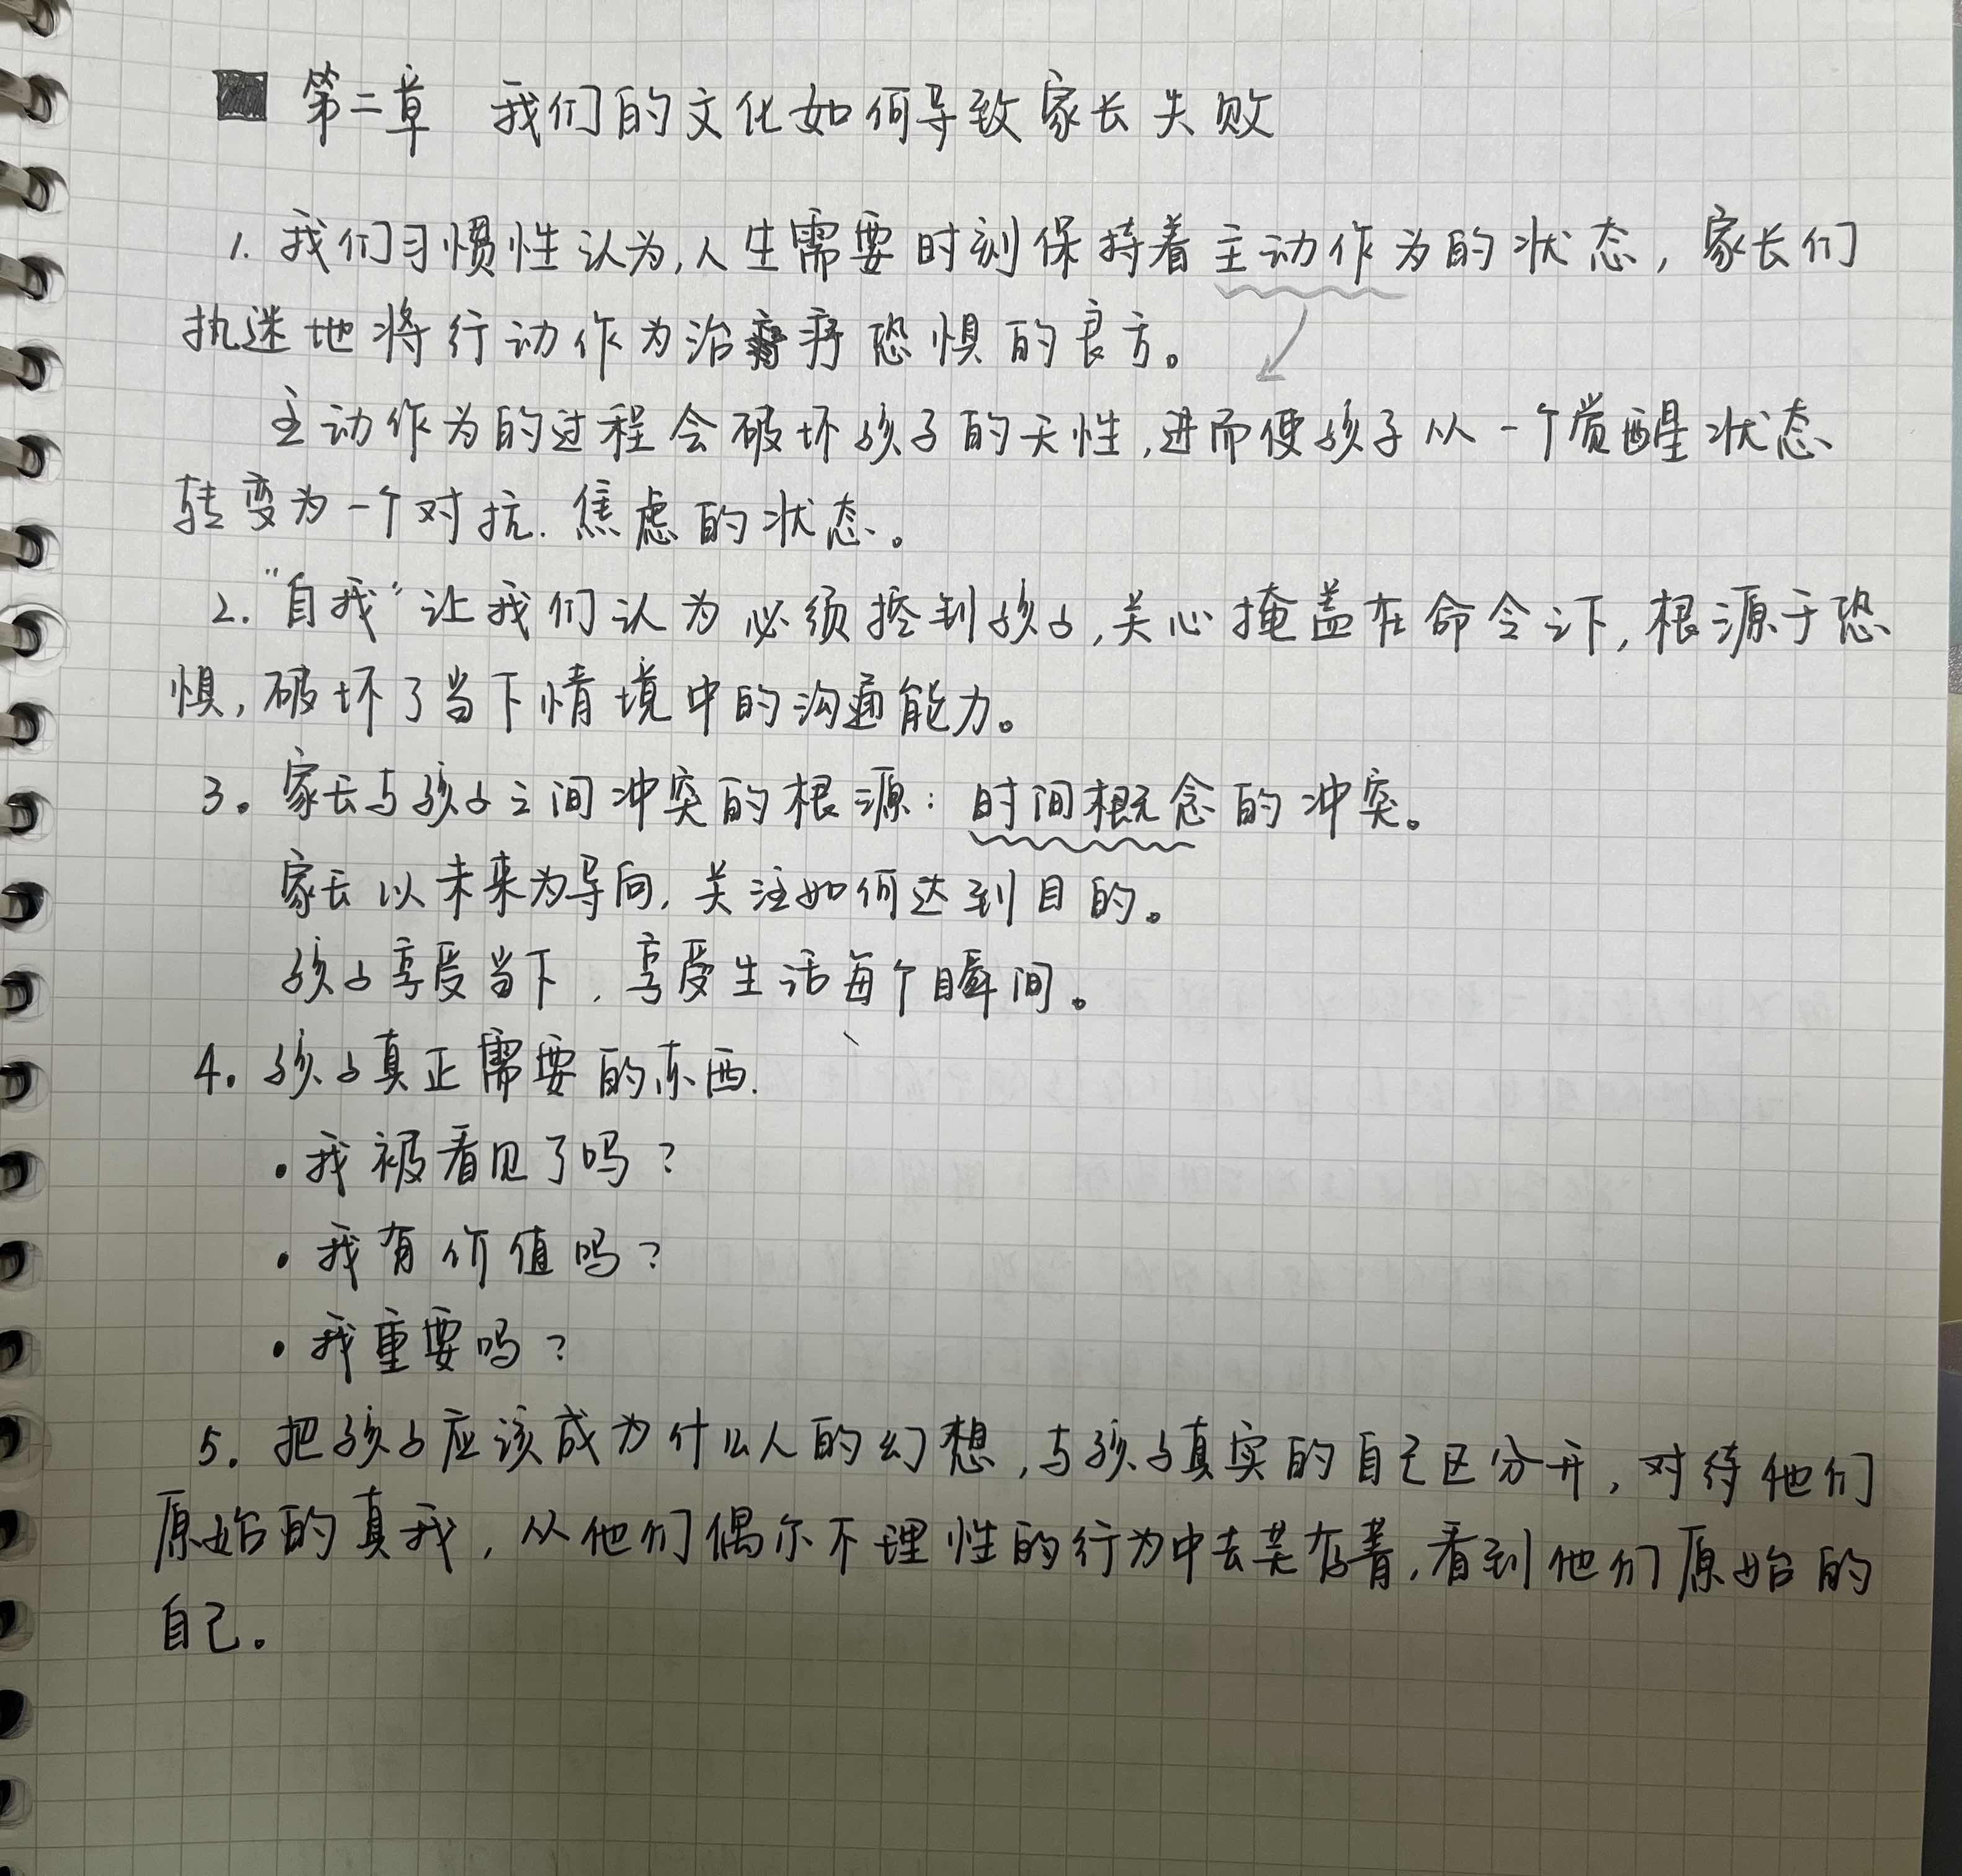 第二章 我们的文化如何导致家长失败
1. 我们习惯性认为,人生需要时刻保持着主动作为的状态，家长们
执迷地将行动作为治疗恐惧的良方。
主动作为的过程会破坏孩子的天性,进而使孩子从一个觉醒状态
转变为一个对抗.焦虑的状态。
2. "自我"让我们认为必须控制孩子,关心掩盖在命令之下,根源于恐
惧,破坏了当下情境中的沟通能力。
3。家长与孩子之间冲突的根源：时间概念的冲突。
家长以未来为导向,关注如何达到目的。
孩子享受当下,享受生活每个瞬间。
4。孩子真正需要的东西.
·我被看见了吗?
·我有价值吗?
·我重要吗?
5. 把孩子应该成为什么人的幻想,与孩子真实的自己区分开,对待他们
原始的真我,从他们偶尔不理性的行为中去芜存菁,看到他们原始的
自己。